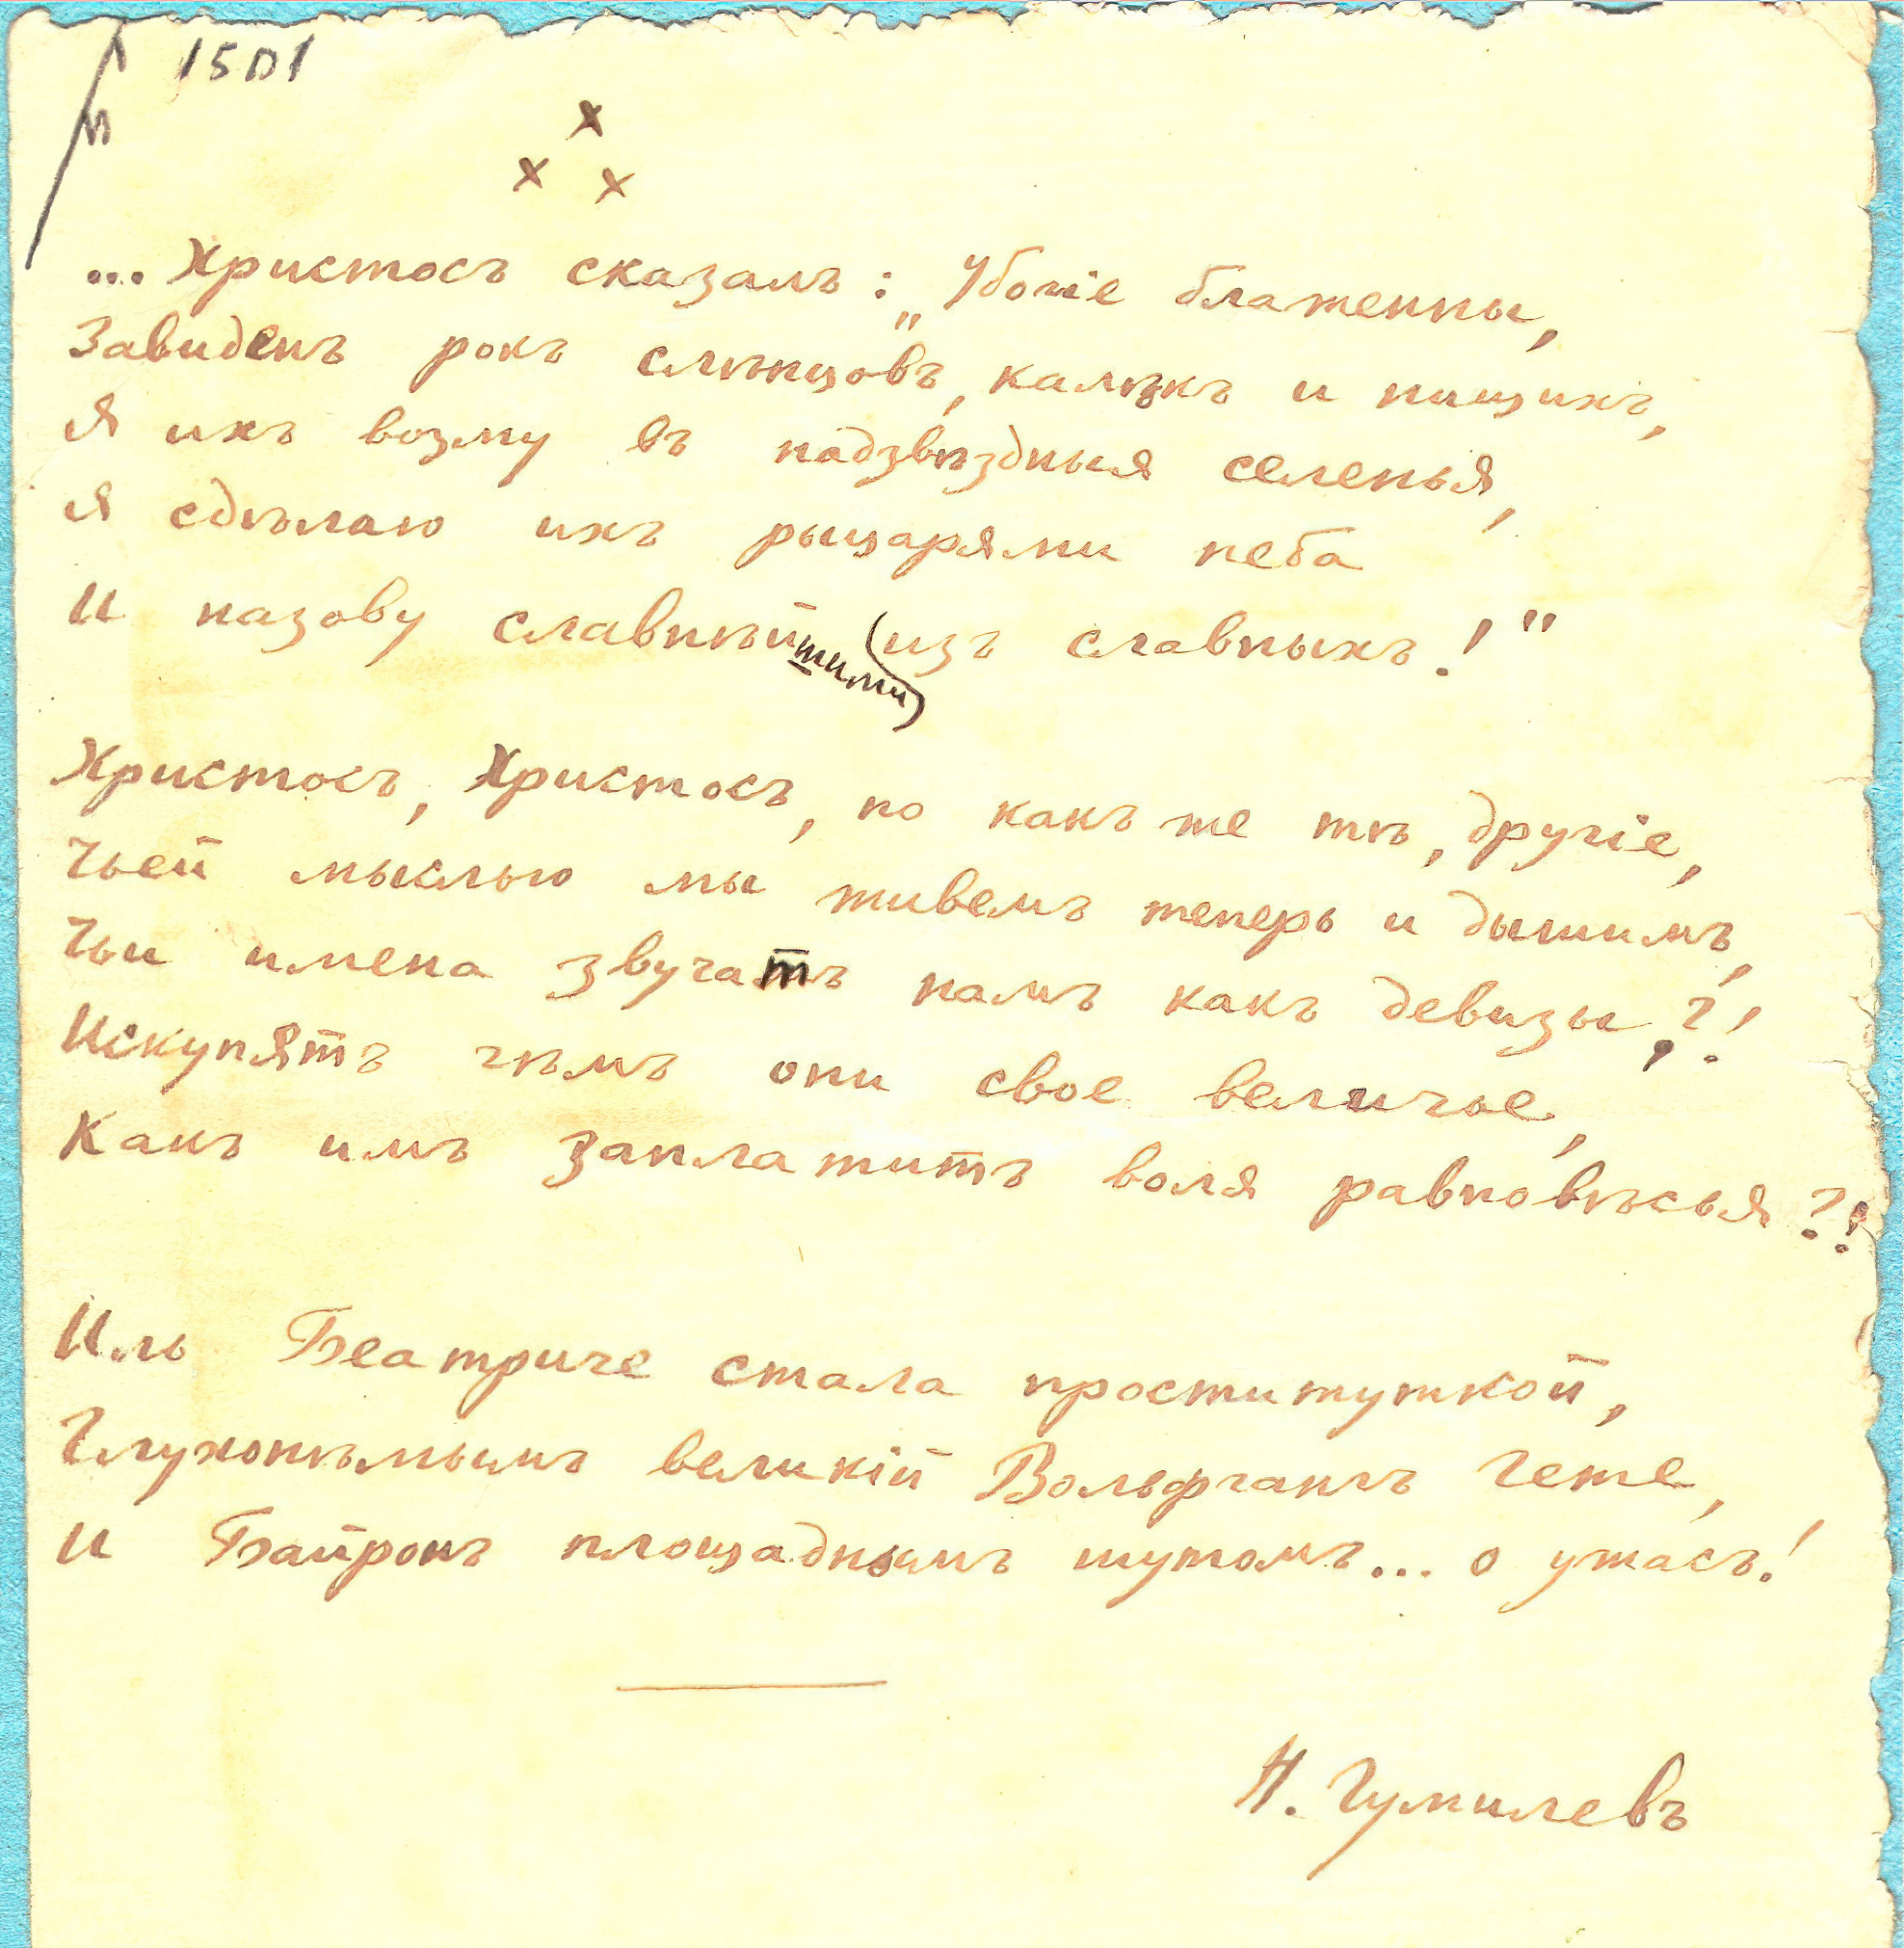 1501
x
x x
... Христосъ сказалъ: „Убогіе блаженны,
Завиденъ рокъ слѣпцовъ, калѣкъ и нищихъ,
Я ихъ возму въ надзвѣздныя селенья,
Я сдѣлаю ихъ рыцарями неба
И назову славнѣйшими изъ славныхъ!"
Христосъ, Христосъ, но какъ же тѣ, другіе,
Чьей мыслью мы живемъ теперь и дышимъ,
Чьи имена звучатъ намъ какъ девизы,?!
Искупятъ чѣмъ они свое величье,
Какъ имъ заплатитъ воля равновѣсья?!
Иль Беатриче стала проституткой,
Глухонѣмымъ великій Вольфгангъ Гете,
И Байронъ площаднымъ шутомъ... о ужасъ!
Н. Гумилевъ